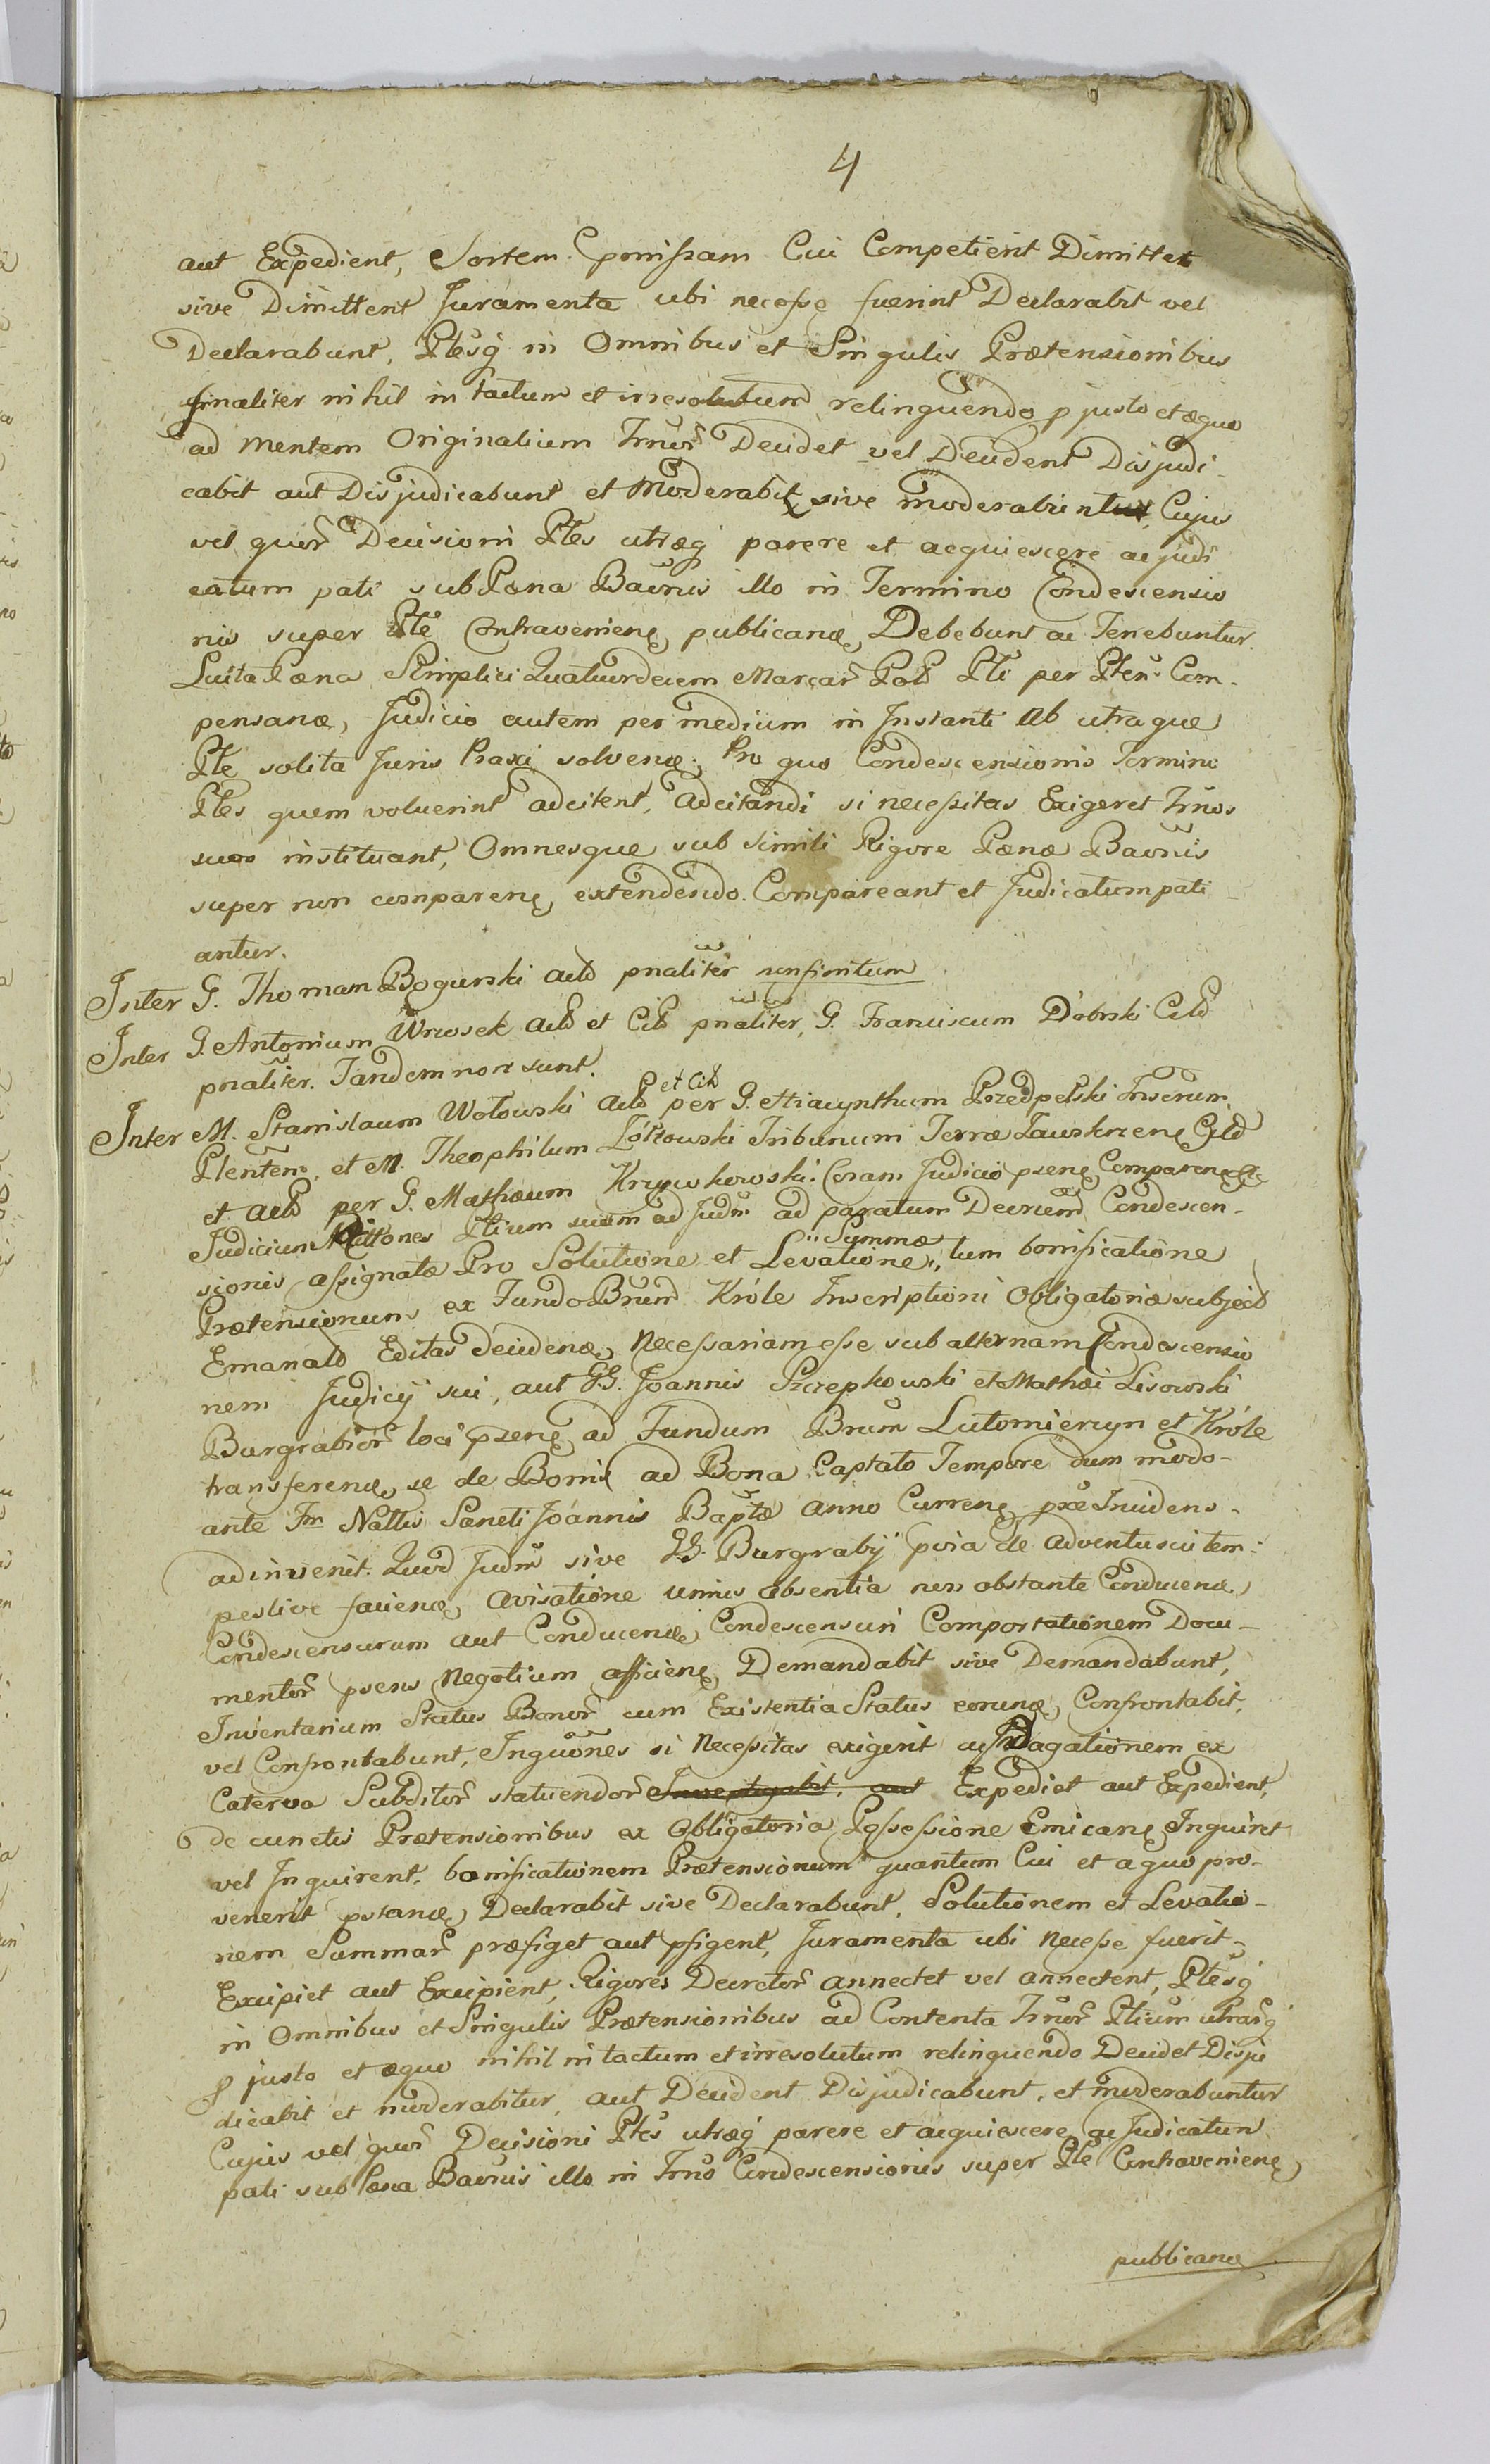 4
aut Expedient, Sortem pmissam Cui Competierit Dimittet
sive Dimittent Juramenta ubi necesse fuerint Declarabit vel
Declarabunt, Ptesq in Omnibus et Singulis Prætensionibus
finaliter nihil intactum et irresolutum relinquendo p justo et æquo
ad mentem Originalium Trnor Decidet vel Decident Disjudi-
cabit aut Disjudicabunt et Moderabit sive moderabunt Cujus
vel quor Decisioni Ptes utræq parere et acquiescere ac judi
catum pati sub Pæna Baōnis illo in Termino Condescensio
nis super Pte Contravenienę, publicanæ, Debebunt ac Tenebuntur.
Luita Pæna Simplici Quatuordecim Marcar Pol Pti per Ptem Com-
pensanæ, Judicio autem per medium in Instanti Ab utraque
Pte solita Juris Praxi solvenæ; Pro quo Condescensionis Termino
Ptes quem voluerint adcitent, adcitandi si necessitas Exigeret Trnos
suos instituant, Omnesque sub simili Rigore Pænæ Baōnis
super non comparenę, extendendo. Compareant et Judicatum pati
antur.
Inter G. Thomam Bogurski Actō pnaliter infinitum
Inter G. Antonium Wrzosek Actō et Citō pnaliter, G. Franciscum Dobrski Citō
pnaliter. Tandem non sunt.
Inter M. Stanislaum Wołowski Actō et Citō per G. Hiacynthum Przedpełski Inserum
Plentem, et M. Theophilum Żołtowski Tribunum Terræ Zauskrzenę Citō
et Actō per G. Mathæum Krzyczkowski. Coram Judicio psenę, Comparenę
Judicium Ptium suum ad Judm ad paratum Decreūm Condescen-
sionis assignatæ Pro Solutione et Levatione, Summæ tum bonificatione
Prætensionum ex Fundo Bnum Króle Inscriptioni Obligatoriæ subject
Emanatō Editas decidenæ, Necessariam esse subalternam Condescensio
nem Judicij sui, aut G.G. Joannis Szczepkowski et Mathæi Lisowski
Burgrabior loci psenę, ad Fundum Bnum Lutomierzyn et Króle
transferenæ, se de Bonis ad Bona Captato Tempore dum modo-
ante Fm Nattis Sancti Joannis Baptæ anno Currenę præ Incidens-
adinvenit. Quod Judm sive GG. Burgrabij pvia de adventu sui tem-
pestive facienæ, avisatione unius absentia non obstante Conducenæ
Condescensurum aut Conducenæ, Condescensuri Comportationem Docu-
mentor psens Negotium afficienę, Demandabit sive Demandabunt,
Inventarium Status Bonor cum Existentia Status eorunæ, Confrontabit,
vel Confrontabunt, Inquōnes si Necessitas exigerit ac Indagationem ex
Caterva Subditor statuendor Investigabit, aut Expediet aut Expedient,
de cunctis Prætensionibus ex Obligatoria Possessione Emicanę Inquiret
vel Inquirent, bonificationem Prætensionum quantum Cui et a quo pro-
venerit pstanæ, Declarabit sive Declarabunt, Solutionem et Levatio-
nem Summar præfiget aut pfigent, Juramenta ubi Necesse fuerit-
Excipiet aut Excipient, Rigores Decretor annectet vel annectent, Ptesq
in Omnibus et Singulis Prætensionibus ad Contenta Trnor Ptium utrarq
p justo et æquo nihil intactum et irresolutum relinquendo Decidet Disju
dicabit et moderabitur aut Decident Disjudicabunt, et moderabuntur
Cujus vel quor Decisioni Ptes utræq parere et acquiescere ac Judicatum
pati sub Pæna Baōnis illo in Trno Condescensionis super Pte Contravenienę,
publicanæ